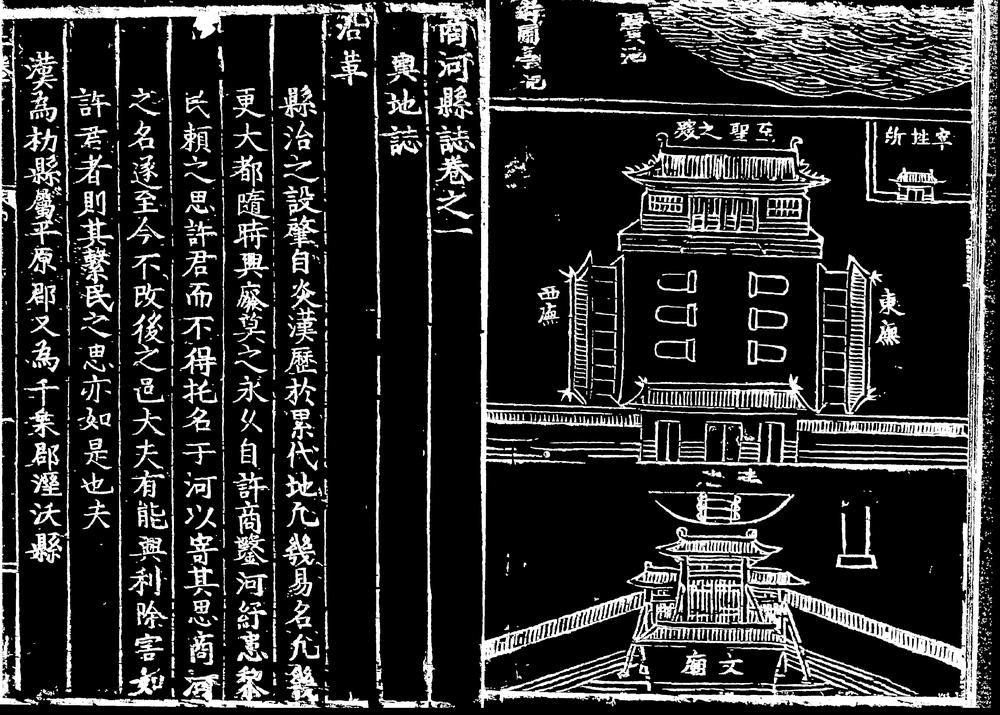 宰牲所
至聖之殿
東廡
西廡
泮池
文廟
商河縣誌卷之一
輿地誌
沿革
縣治之設肇自炎漢歷於累代地凡幾易名凡幾
更大都隨時興廢莫之永久自許商鑿河紓患黎
民賴之思許君而不得托名于河以寄其思商河
之名遂至今不改後之邑大夫有能興利除害如
許君者則其繫民之思亦如是也夫
漢為朸縣屬平原郡又為千乗郡溼沃縣